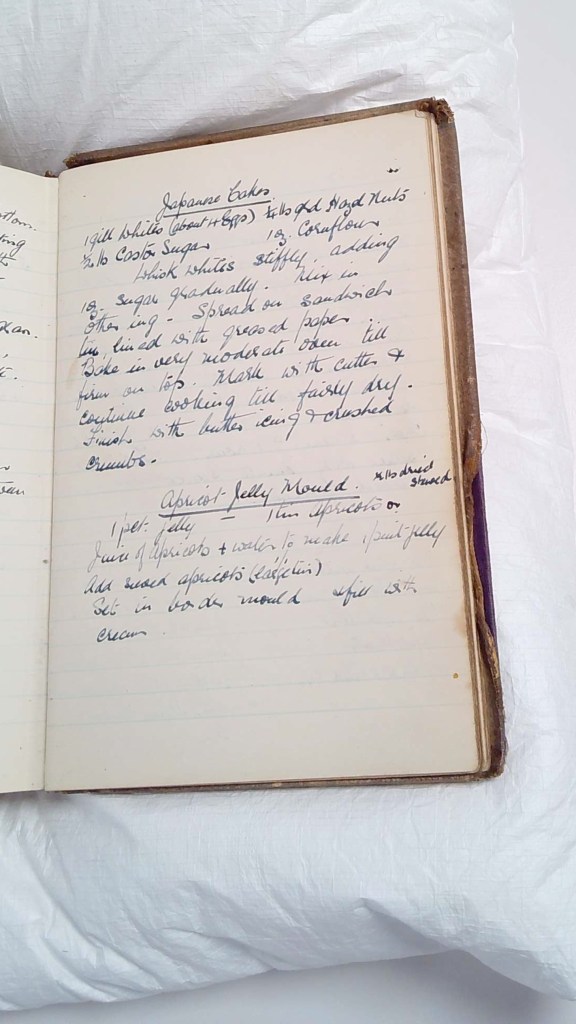 ttom.
Japanese Cakes
1 gill Whites (about 4 Eggs) ¼ lb grd Hazel Nuts
½ lb Castor Sugar 1 oz. Cornflour
Whisk whites stiffly, adding
1 oz. sugar gradually. Mix in
other ing - Spread on sandwich
tin, lined with greased paper
Bake in very moderate oven till
firm on top. Mark with cutter &
continue cooking till fairly dry.
Finish with butter icing & crushed
crumbs.
Apricot-Jelly Mould. lb dried stewed
1 pct. Jelly — 1 tin apricots or
Juice of apricots + water to make 1 pint jelly
Add sieved apricots
Set in border mould fill with
cream